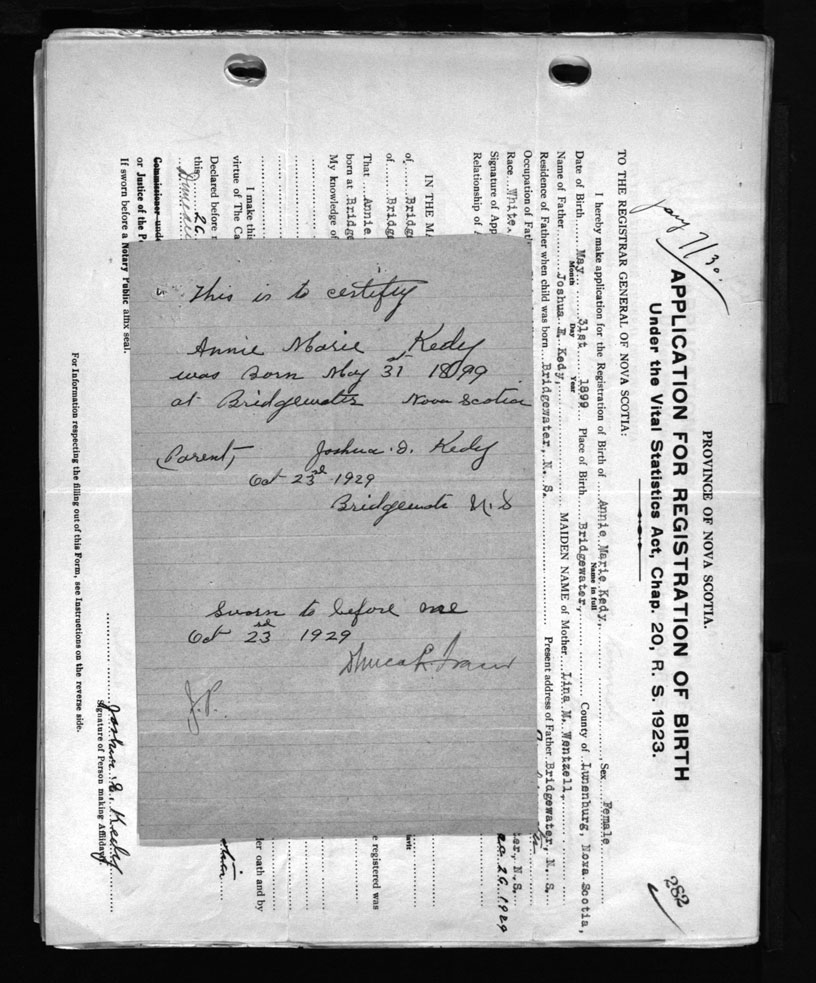 PROVINCE OF NOVA SCOTIA.
APPLICATION FOR REGISTRATION OF BIRTH
Under the Vital Statistics Act, Chap. 20, R. S. 1923.
282
Jany 7/30.
TO THE REGISTRAR GENERAL OF NOVA SCOTIA:
I hereby make application for the Registration of Birth of Annie Marie Kedy, Sex Female
Name in full
Date of Birth May 31st 1899 Place of Birth Bridgewater, County of Lunenburg, Nova Scotia,
Month Day Year
Name of Father Joshua E. Kedy, MAIDEN NAME of Mother Lina M. Wentzell,
Residence of Father when child was born Bridgewater, N. S. Present address of Father Bridgewater, N. S.
Occupation of
Race White. ter, N.S.
Signature of 26. 1929
Relationship of
IN THE
of Bridg
of Bridg
That Annie e registered was
born at Bridge
My knowledge of
I make this ler oath and by
virtue of The
Declared before
this 26
Commissioner
or Justice of the
If sworn before a Notary Public affix seal.
Joshua E. Kedy
Signature of Person making Affidavit
For Information respecting the filling out of this Form, see Instructions on the reverse side.
This is to certify
Annie Marie Kedy
was Born May 31st 1899
at Bridgewater Nova Scotia
Parent, Joshua E. Kedy
Oct 23rd 1929
Bridgewater N.S
Sworn to before me
Oct 23rd 1929
J.P.